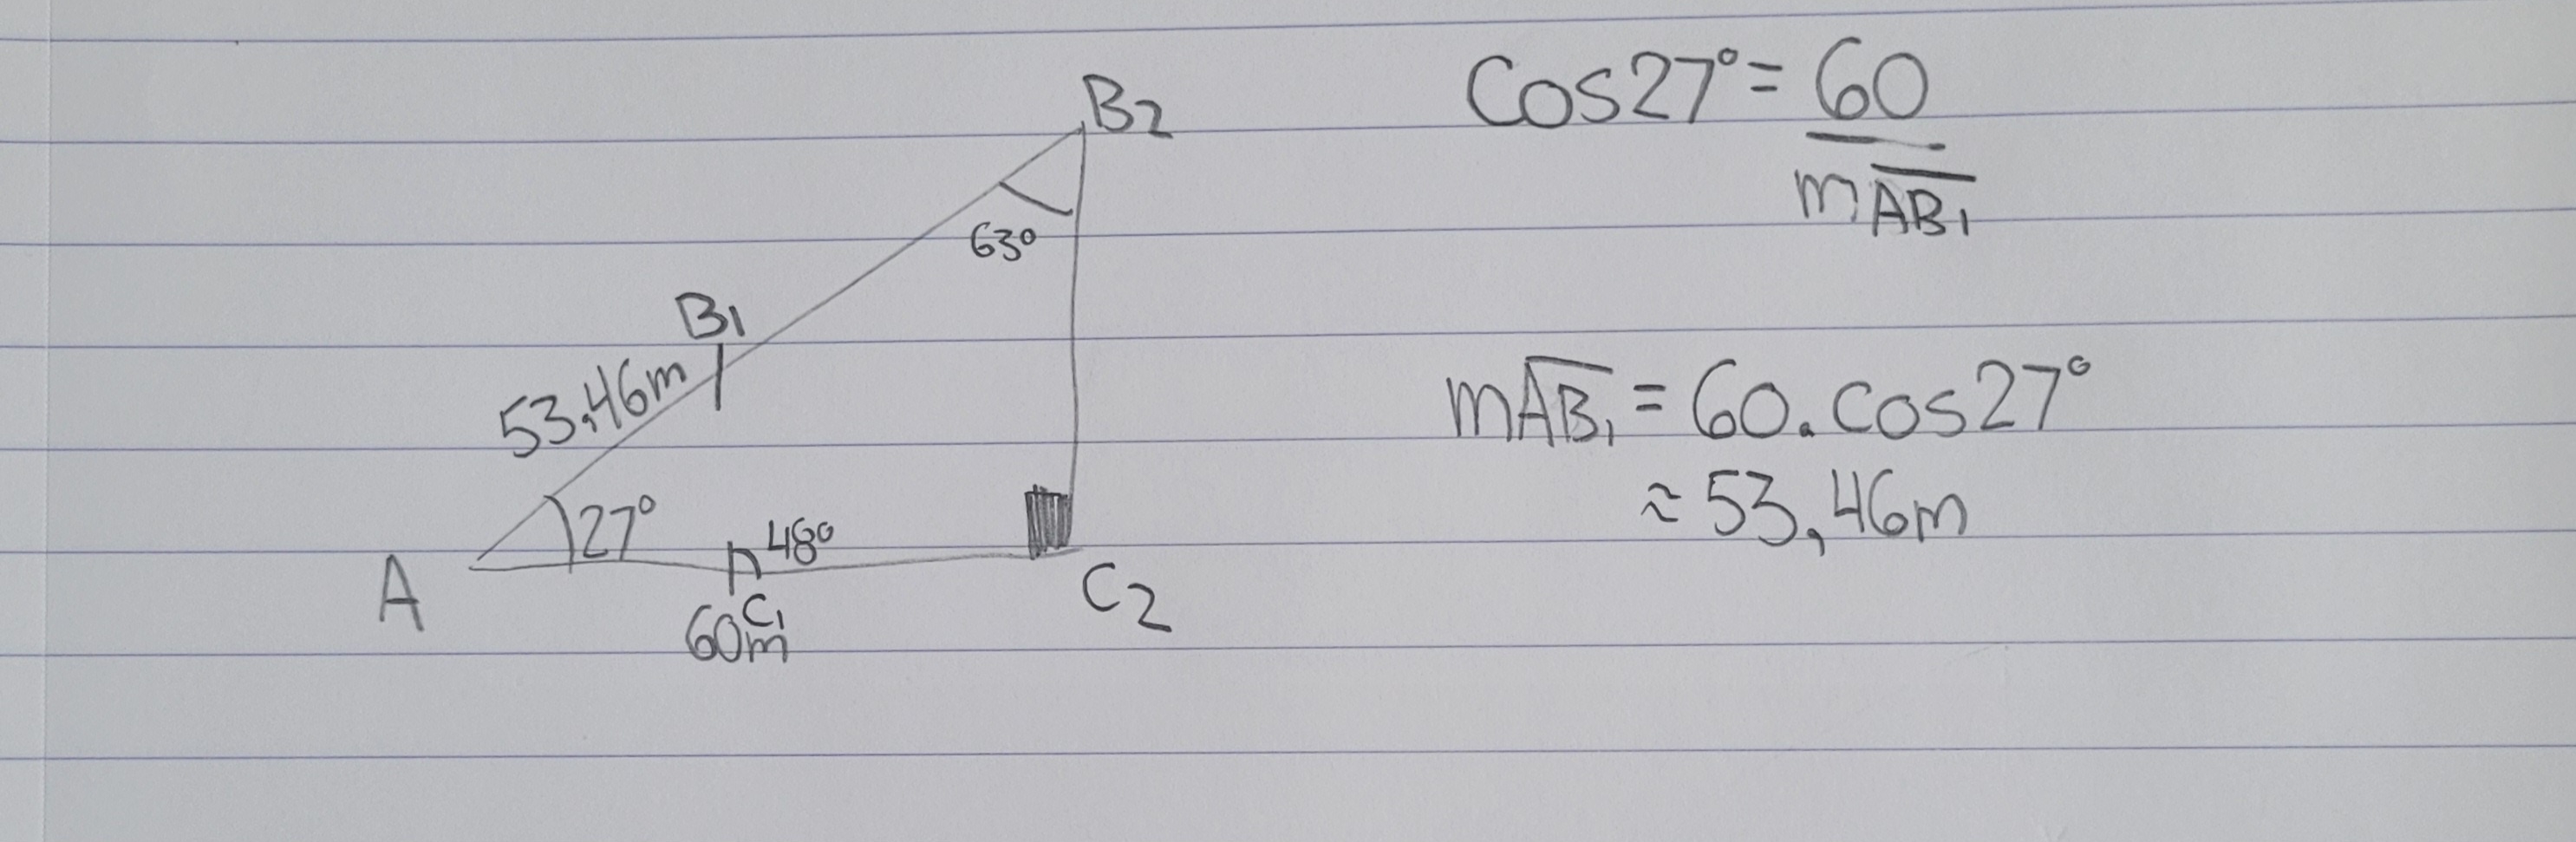 B2
63°
B1
53,46m
27°
48°
A
C1
60m
C2
Cos27° = 60
mAB1
mAB1 = 60.cos27°
≈ 53,46m